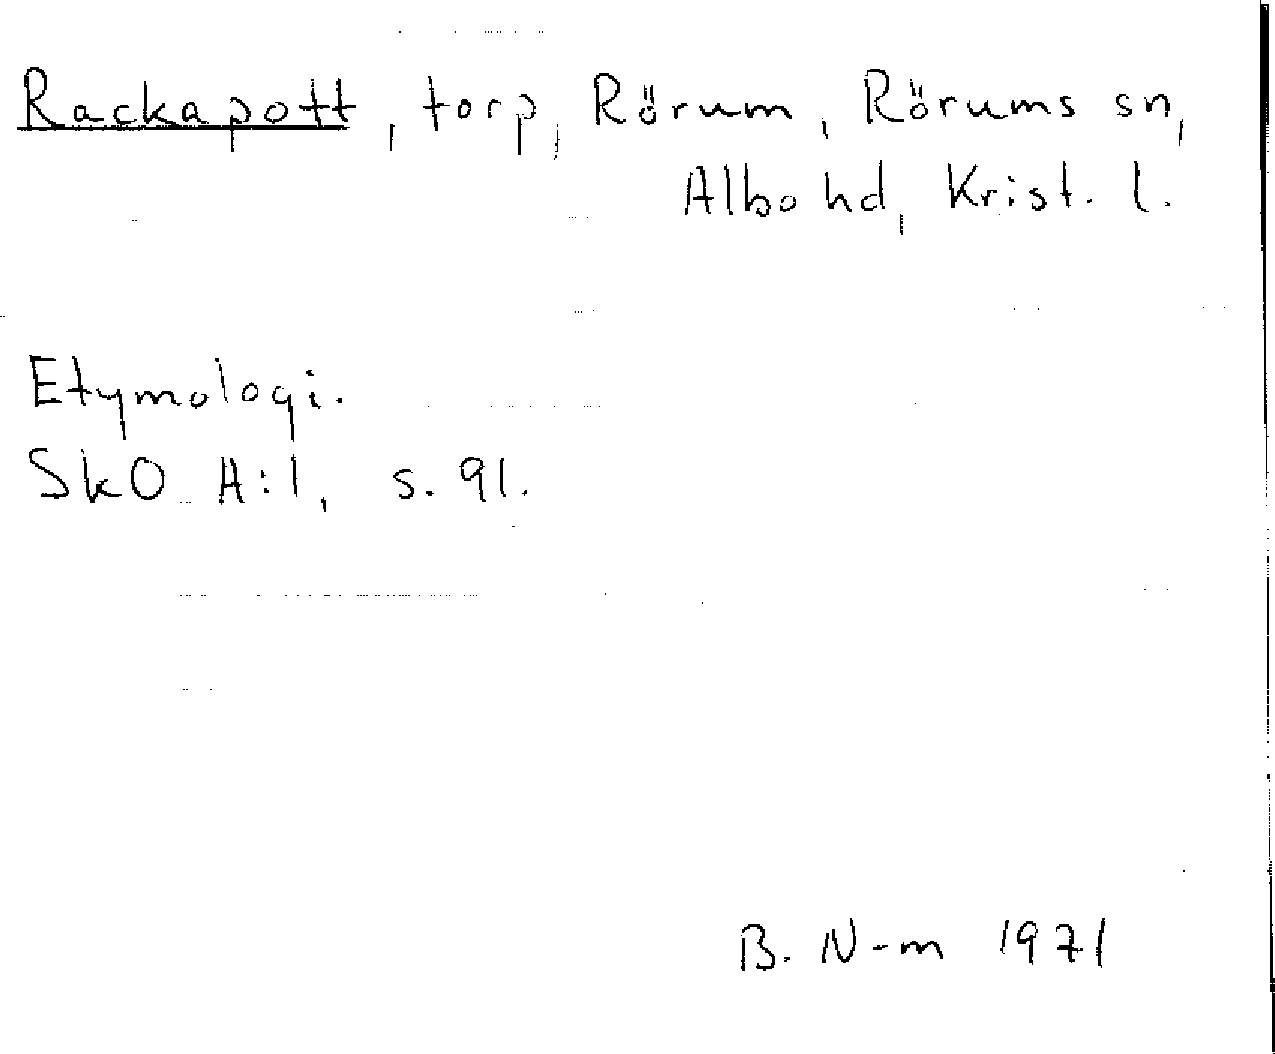 Rackapott, torp, Rörum, Rörums sn,
Albo hd, Krist. l.
Etymologi.
SkO A:1, s. 91.
B. N-m 1971